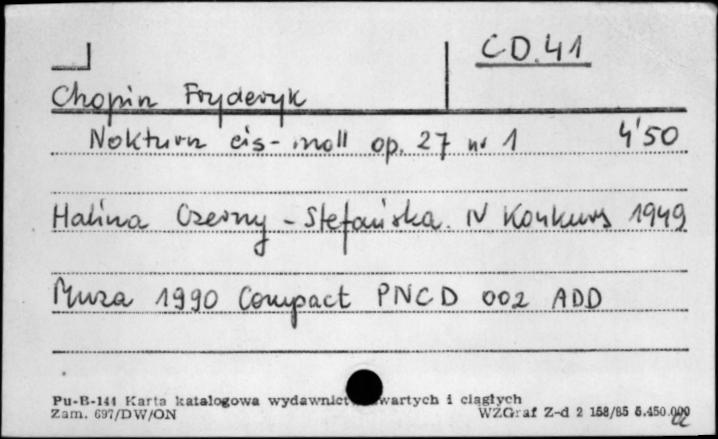 CD.41
Chopin Fryderyk
Nokturn cis-moll op. 27 nr 1 4'50
Halina Czerny-Stefańska. IV Konkurs 1949
Muza 1990 Compact PNCD 002 ADD
Pu-B-141 Karta katalogowa wydawnict wartych i ciągłych
Zam. 697/DW/ON WZGraf Z-d 2 158/85 5.450.000